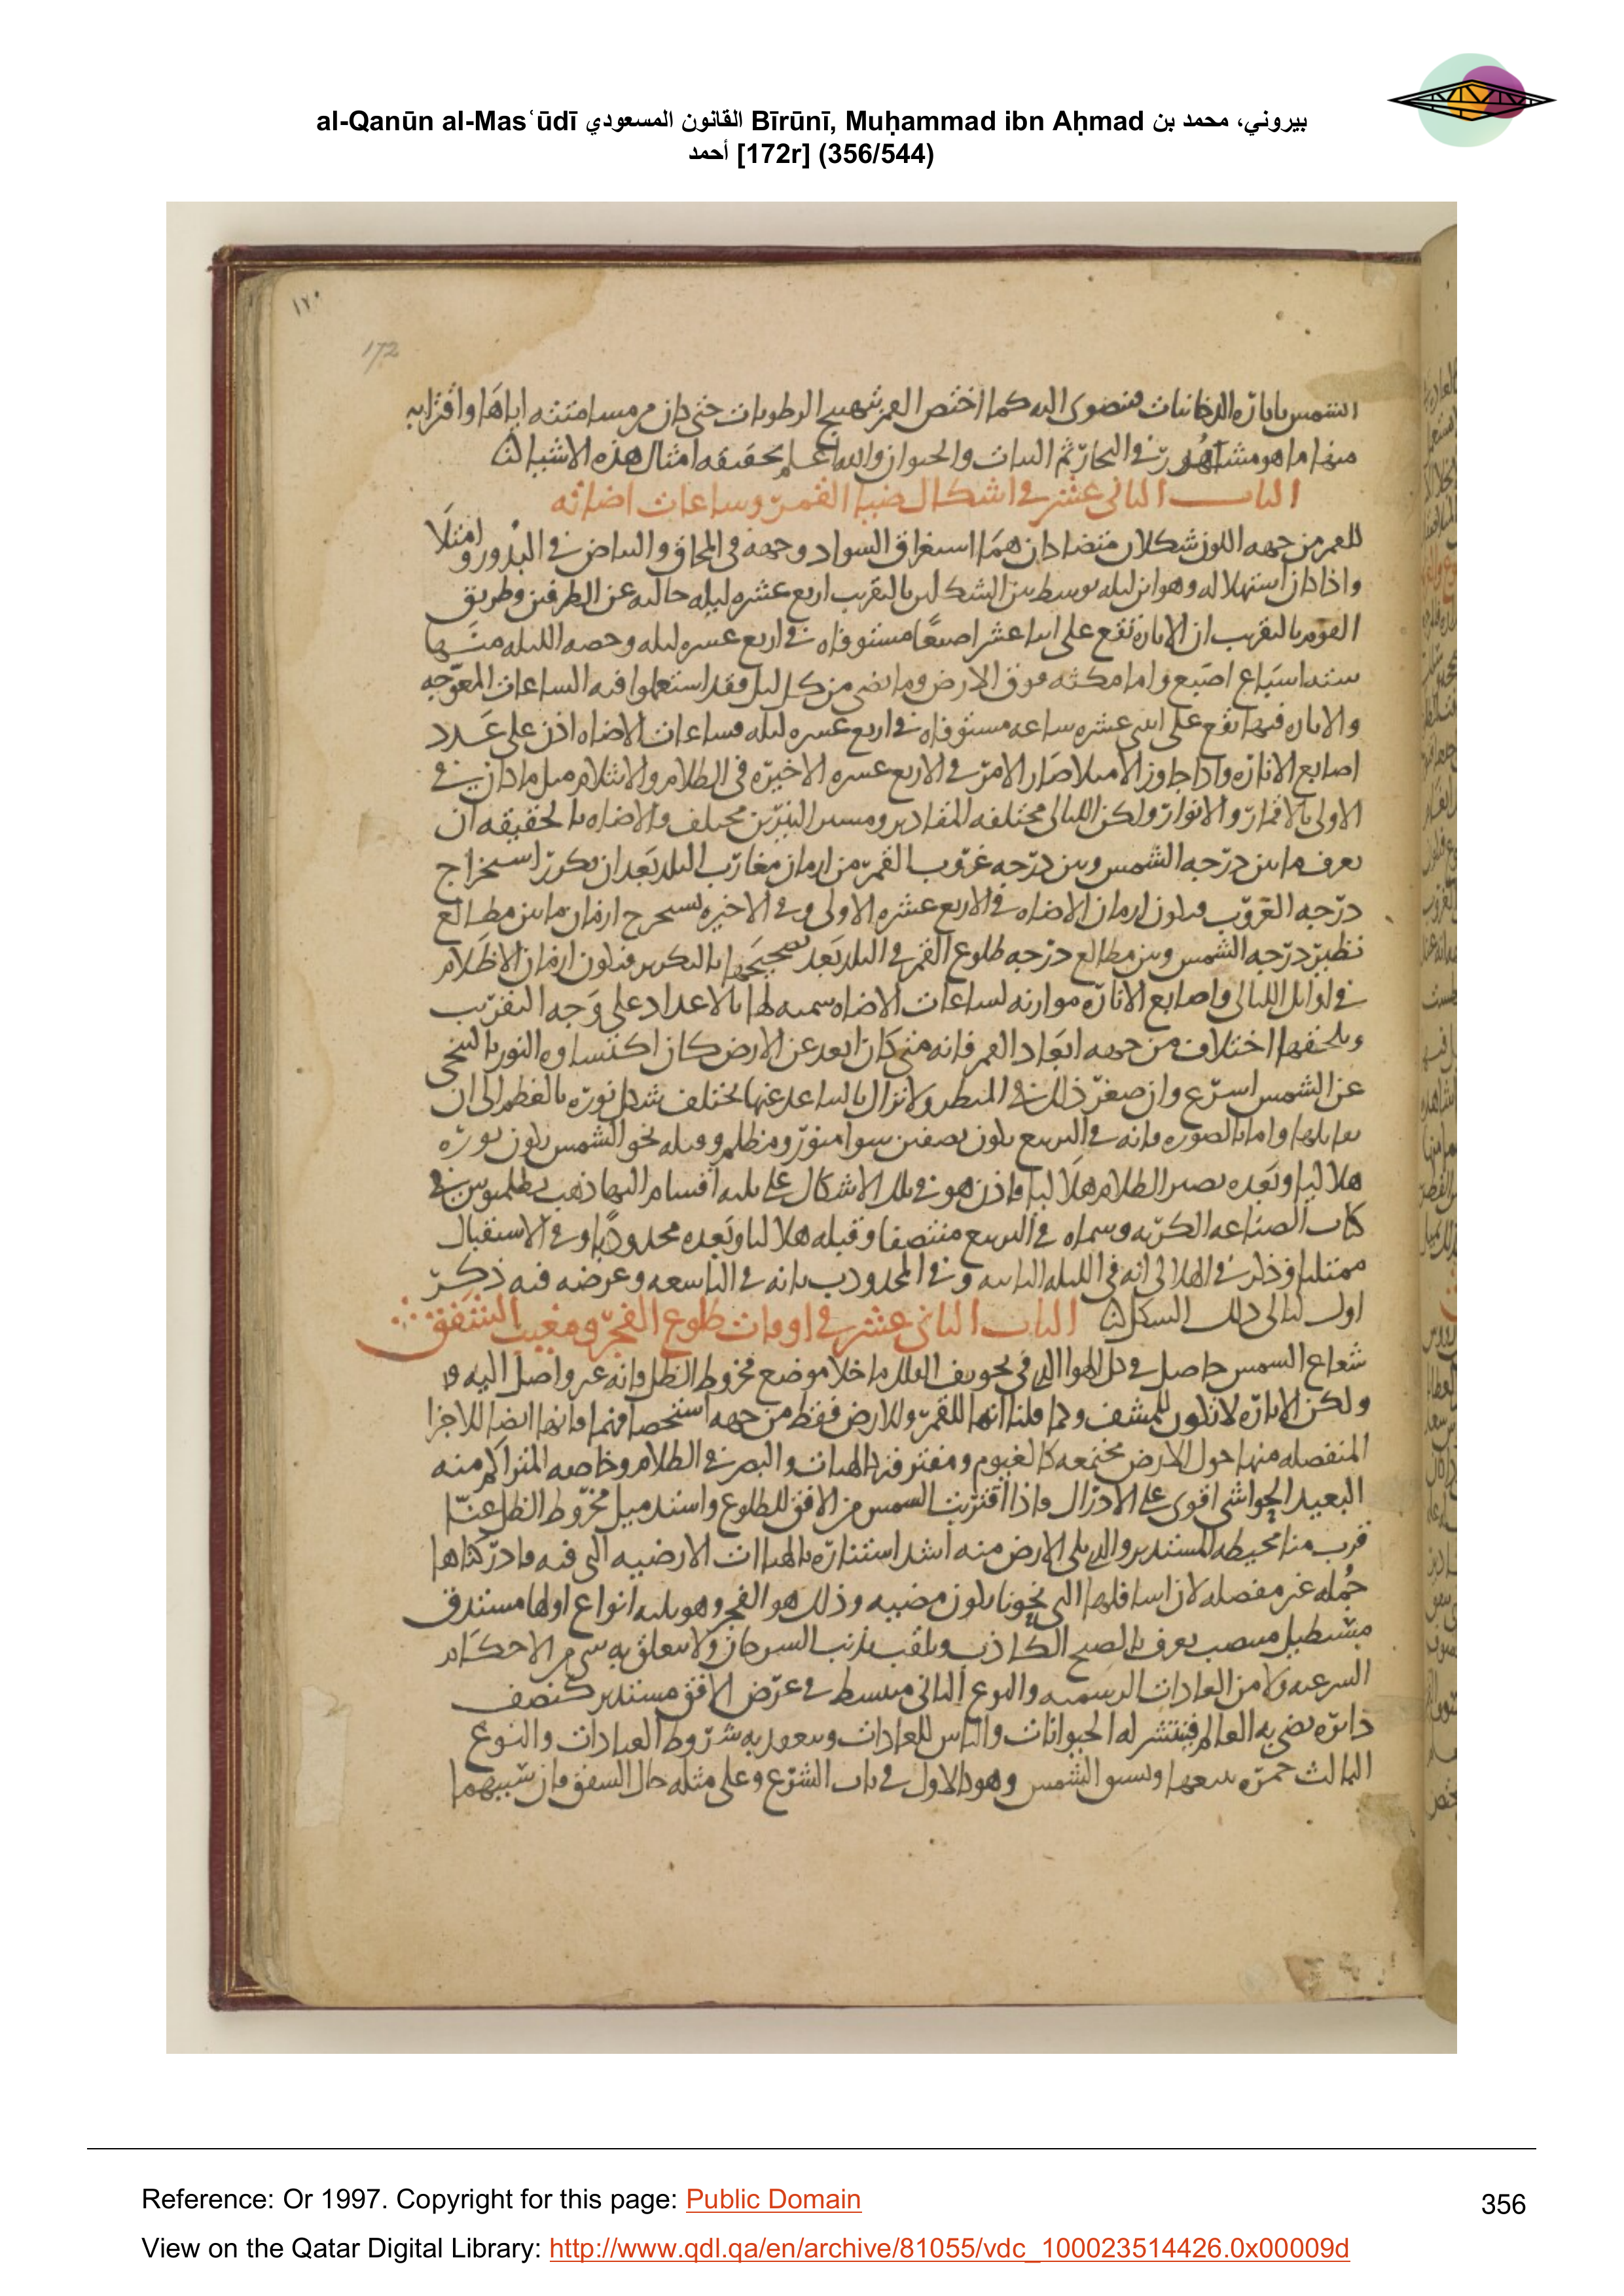 al-Qanūn al-Masʿūdī القانون المسعودي Bīrūnī, Muḥammad ibn Aḥmad بيروني، محمد بن
أحمد [172r] (356/544)
١٧٠
172
الشمس باثارة الدخانيات فتضوى اليه كما اختص القمر بتهييج الرطوبات حتى كان من مسامتته اياها واقترابه
منها ما هو مشاهد في البحار ثم النبات والحيوان والله اعلم بحقيقه امثال هذه الاشيا
الباب الثاني عشر في اشكال ضيا القمر وساعات اضائه
للقمر من جهه اللون شكلان متضادان هما استغراق السواد وجهه في المحاق والبياض في البدور وامتلا
واذا كان استهلاله وهو ابن ليله توسط بين الشكلين بالتقريب اربع عشره ليله خاليه عن الطرفين وطريق
القوم بالتقريب ان الاناره تقع على اثنا عشر اصبعا مستوفاه في اربع عشره ليله وحصه الليله منها
سته اسباع اصبع واما مكثه فوق الارض وما يضي من كل ليل فقد استعملوا فيه الساعات المعوجه
والاناره فيها تقع على اثنى عشره ساعه مستوفاه في اربع عشره ليله فساعات الاضاه اذن على عدد
اصابع الاناره واذا جاوز الامتلا صار الامر في الاربع عشره الاخيره في الظلام والانثلام مثل ما كان في
الاولى بالاقمار والانوار ولكن الليالي مختلفه المقادير ومسير النيرين مختلف والاضاه بالحقيقه ان
يعرف ما بين درجه الشمس وبين درجه غروب القمر من ازمان مغارب البلد بعد ان يكرر استخراج
درجه الغروب فيكون ازمان الاضاه في الاربع عشره الاولى وفي الاخيره نستخرج ازمان ما بين مطالع
نظير درجه الشمس وبين مطالع درجه طلوع القمر في البلد بعد تصحيحها بالتكرير فتكون ازمان الاظلام
في اوايل الليالي واصابع الاناره موازنه لساعات الاضاه سميه لها بالاعداد على وجه التقريب
ويلحقها اختلاف من جهه ابعاد القمر فانه متى كان ابعد عن الارض كان اكتساوه النور بالتنحي
عن الشمس اسرع وان صغر ذلك في المنظر ولا يزال بالتباعد عنها يختلف شكل نوره بالعظم الى ان
يقابلها واما بالصوره فانه في التربيع يكون نصفين سوا منور ومظلم وقبله نحو الشمس يكون نوره
هلاليا وبعده يصير الظلام هلاليا فاذن هو في تلك الاشكال على ثلثه اقسام اليها ذهب بطلميوس في
كتاب الصناعه الكريه وسماه في التربيع منتصفا وقبله هلاليا وبعده محدودبا وفي الاستقبال
ممتليا وذكر في الهلالي انه في الليله الثانيه وفي المحدودب بانه في التاسعه وغرضه فيه ذكر
اول ليالى ذلك الشكل الباب الثاني عشر في اوقات طلوع الفجر ومغيب الشفق
شعاع الشمس حاصل في كل الهوا الذي في تجويف الفلك ما خلا موضع مخروط الظل فانه غير واصل اليه
ولكن الاناره لا تكون للمشف وكما قلنا انها للقمر وللارض فقط من جهه استحصافهما فانها ايضا للاجزا
المنفصله منها حول الارض مجتمعه كالغيوم ومفترقه كالهبات والبصر في الظلام وخاصه المتراكم منه
البعيد الحواشى اقوى على الادراك فاذا اقتربت الشمس من الافق للطلوع واستد ميل مخروط الظل عنا
قرب منا محيطه المستدير والذي يلى الارض منه اشد استناره بالهباات الارضيه التى فيه فادركناها
جمله غير مفصله لان اسافلها التى نحونا يكون مضيه وذلك هو الفجر وهو ثلثه انواع اولها مستدق
مستطيل منتصب يعرف بالصبح الكاذب ويلقب بذنب السرحان ولا يتعلق به شي من الاحكام
الشرعيه ولا من العادات الرسميه والنوع الثاني منبسط في عرض الافق مستدير كنصف
دائره يضي به العالم فينتشر له الحيوانات والناس للعادات وينعقد به شروط العبادات والنوع
الثالث حمره تتبعها وتسبق الشمس وهو كالاول في باب الشرع وعلى مثله حال الشفق فان سببهما
Reference: Or 1997. Copyright for this page: Public Domain
356
View on the Qatar Digital Library: http://www.qdl.qa/en/archive/81055/vdc_100023514426.0x00009d